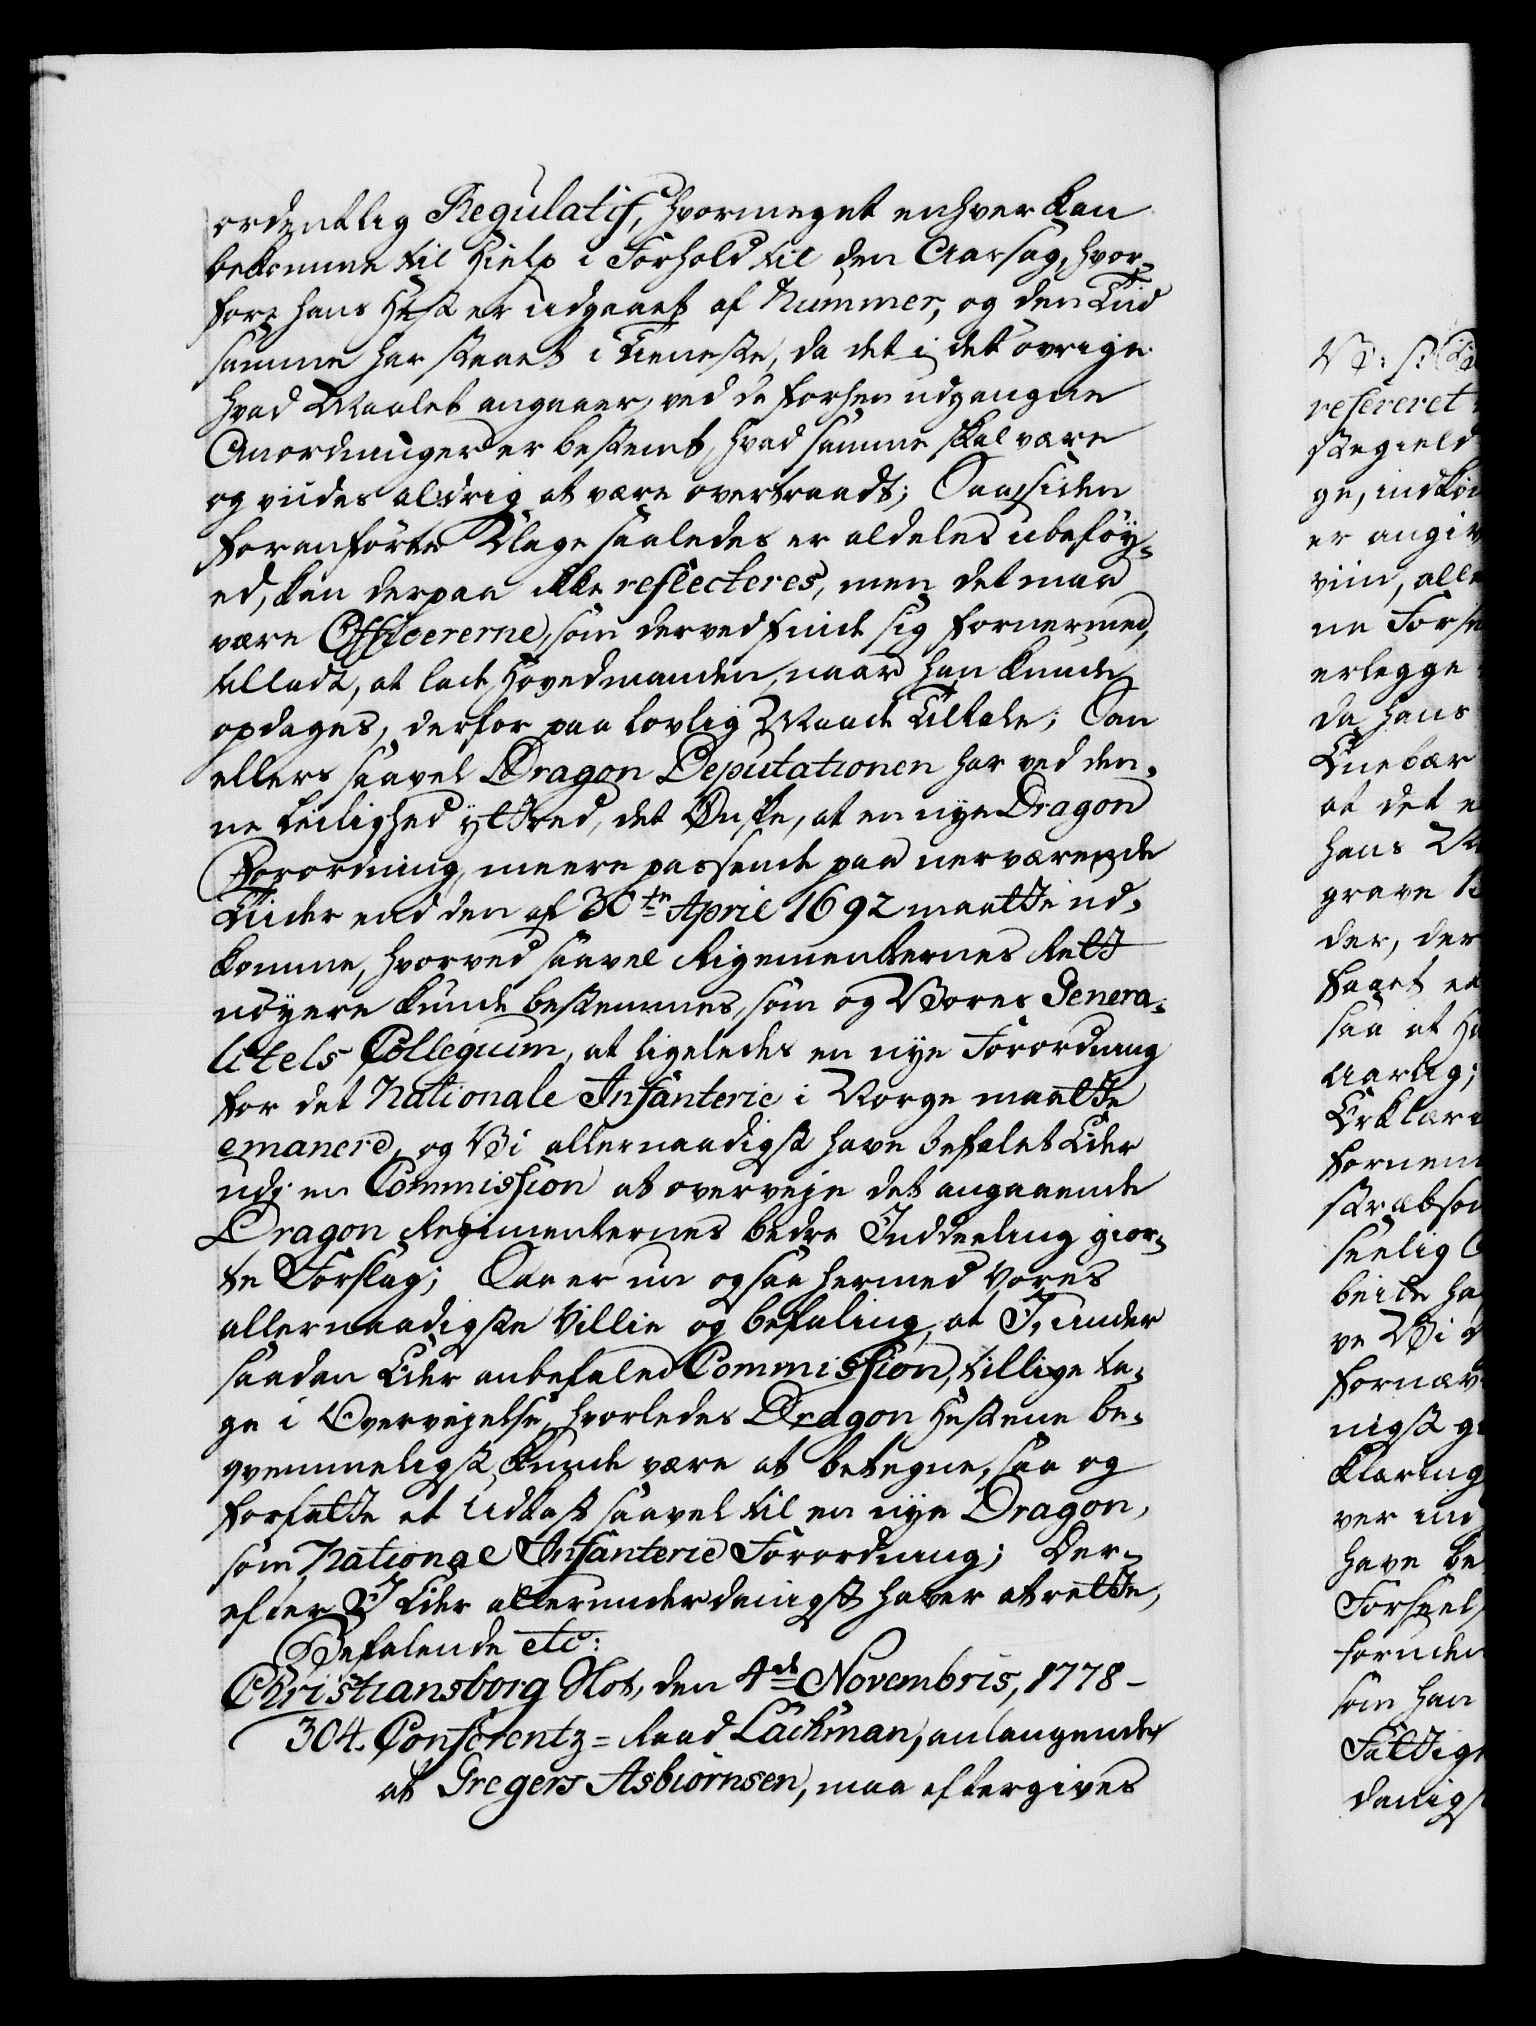 ordentlig Regulatif, hvormeget enhver kan
bekomme til Hielp i Forhold til den Aarsag, hvor-
fore hans Hest er udgaaet af Nummer, og den Tiid
samme har staaet i Tieneste, da det i det øvrige
hvad Maalet angaaer, ved de forhen udgangne
Anordninger er bestemt, hvad samme skal være
og viides aldrig at være overtraadt; Saasiden
foranførte Klage saaledes er aldeles ubeføy-
ed, kan derpaa ikke reflecteres, men det maa
være Officererne, som derved finde sig fornermed,
tilladt, at lade Hovedmanden, naar han kunde
opdages, derfor paa lovlig Maade tiltale; Som
ellers saavel Dragon Deputationen har ved den-
ne Leilighed yttred, det Ønske, at en nye Dragon
Forordning, meere passende paa nerværende
Tiider end den af 30te April 1692 maatte ud-
komme, hvorved saavel Regimenternes Rett
nøyere kunde bestemmes, som og Vores Genera-
litets Collegium, at ligeledes en nye Forordning
for det Nationale Infanterie i Norge maatte
emanere, og Vi allernaadigst have befalet Eder
udj en Commission at overveje det angaaende
Dragon Regimenternes bedre Inddeeling gior-
te Forslag; Saa er nu ogsaa hermed Vores
allernaadigste Villie og befaling, at I, under
saadan Eder anbefaled Commission, tillige ta-
ge i Overvejelse, hvorledes Dragon Hestene be-
qvemmeligst kunde være at betegne, saa og
forfatte et Udkast saavel til en nye Dragon,
som National Infanterie Forordning; Der-
efter I Eder allerunderdanigst haver at rette,
Befalende etc:
Christiansborg Slot, den 4de Novembris, 1778 -
304. Conferentz=Raad Lachman, anlangende
at Gregers Asbiørnsen, maa eftergives
refereret
stegield
er angiv
viin, alle
erlegge
da hans
at det e
hans
der, der
faaet
saa at
aarlig;
ve Vi
nigst
klaring
ver
have be
som han